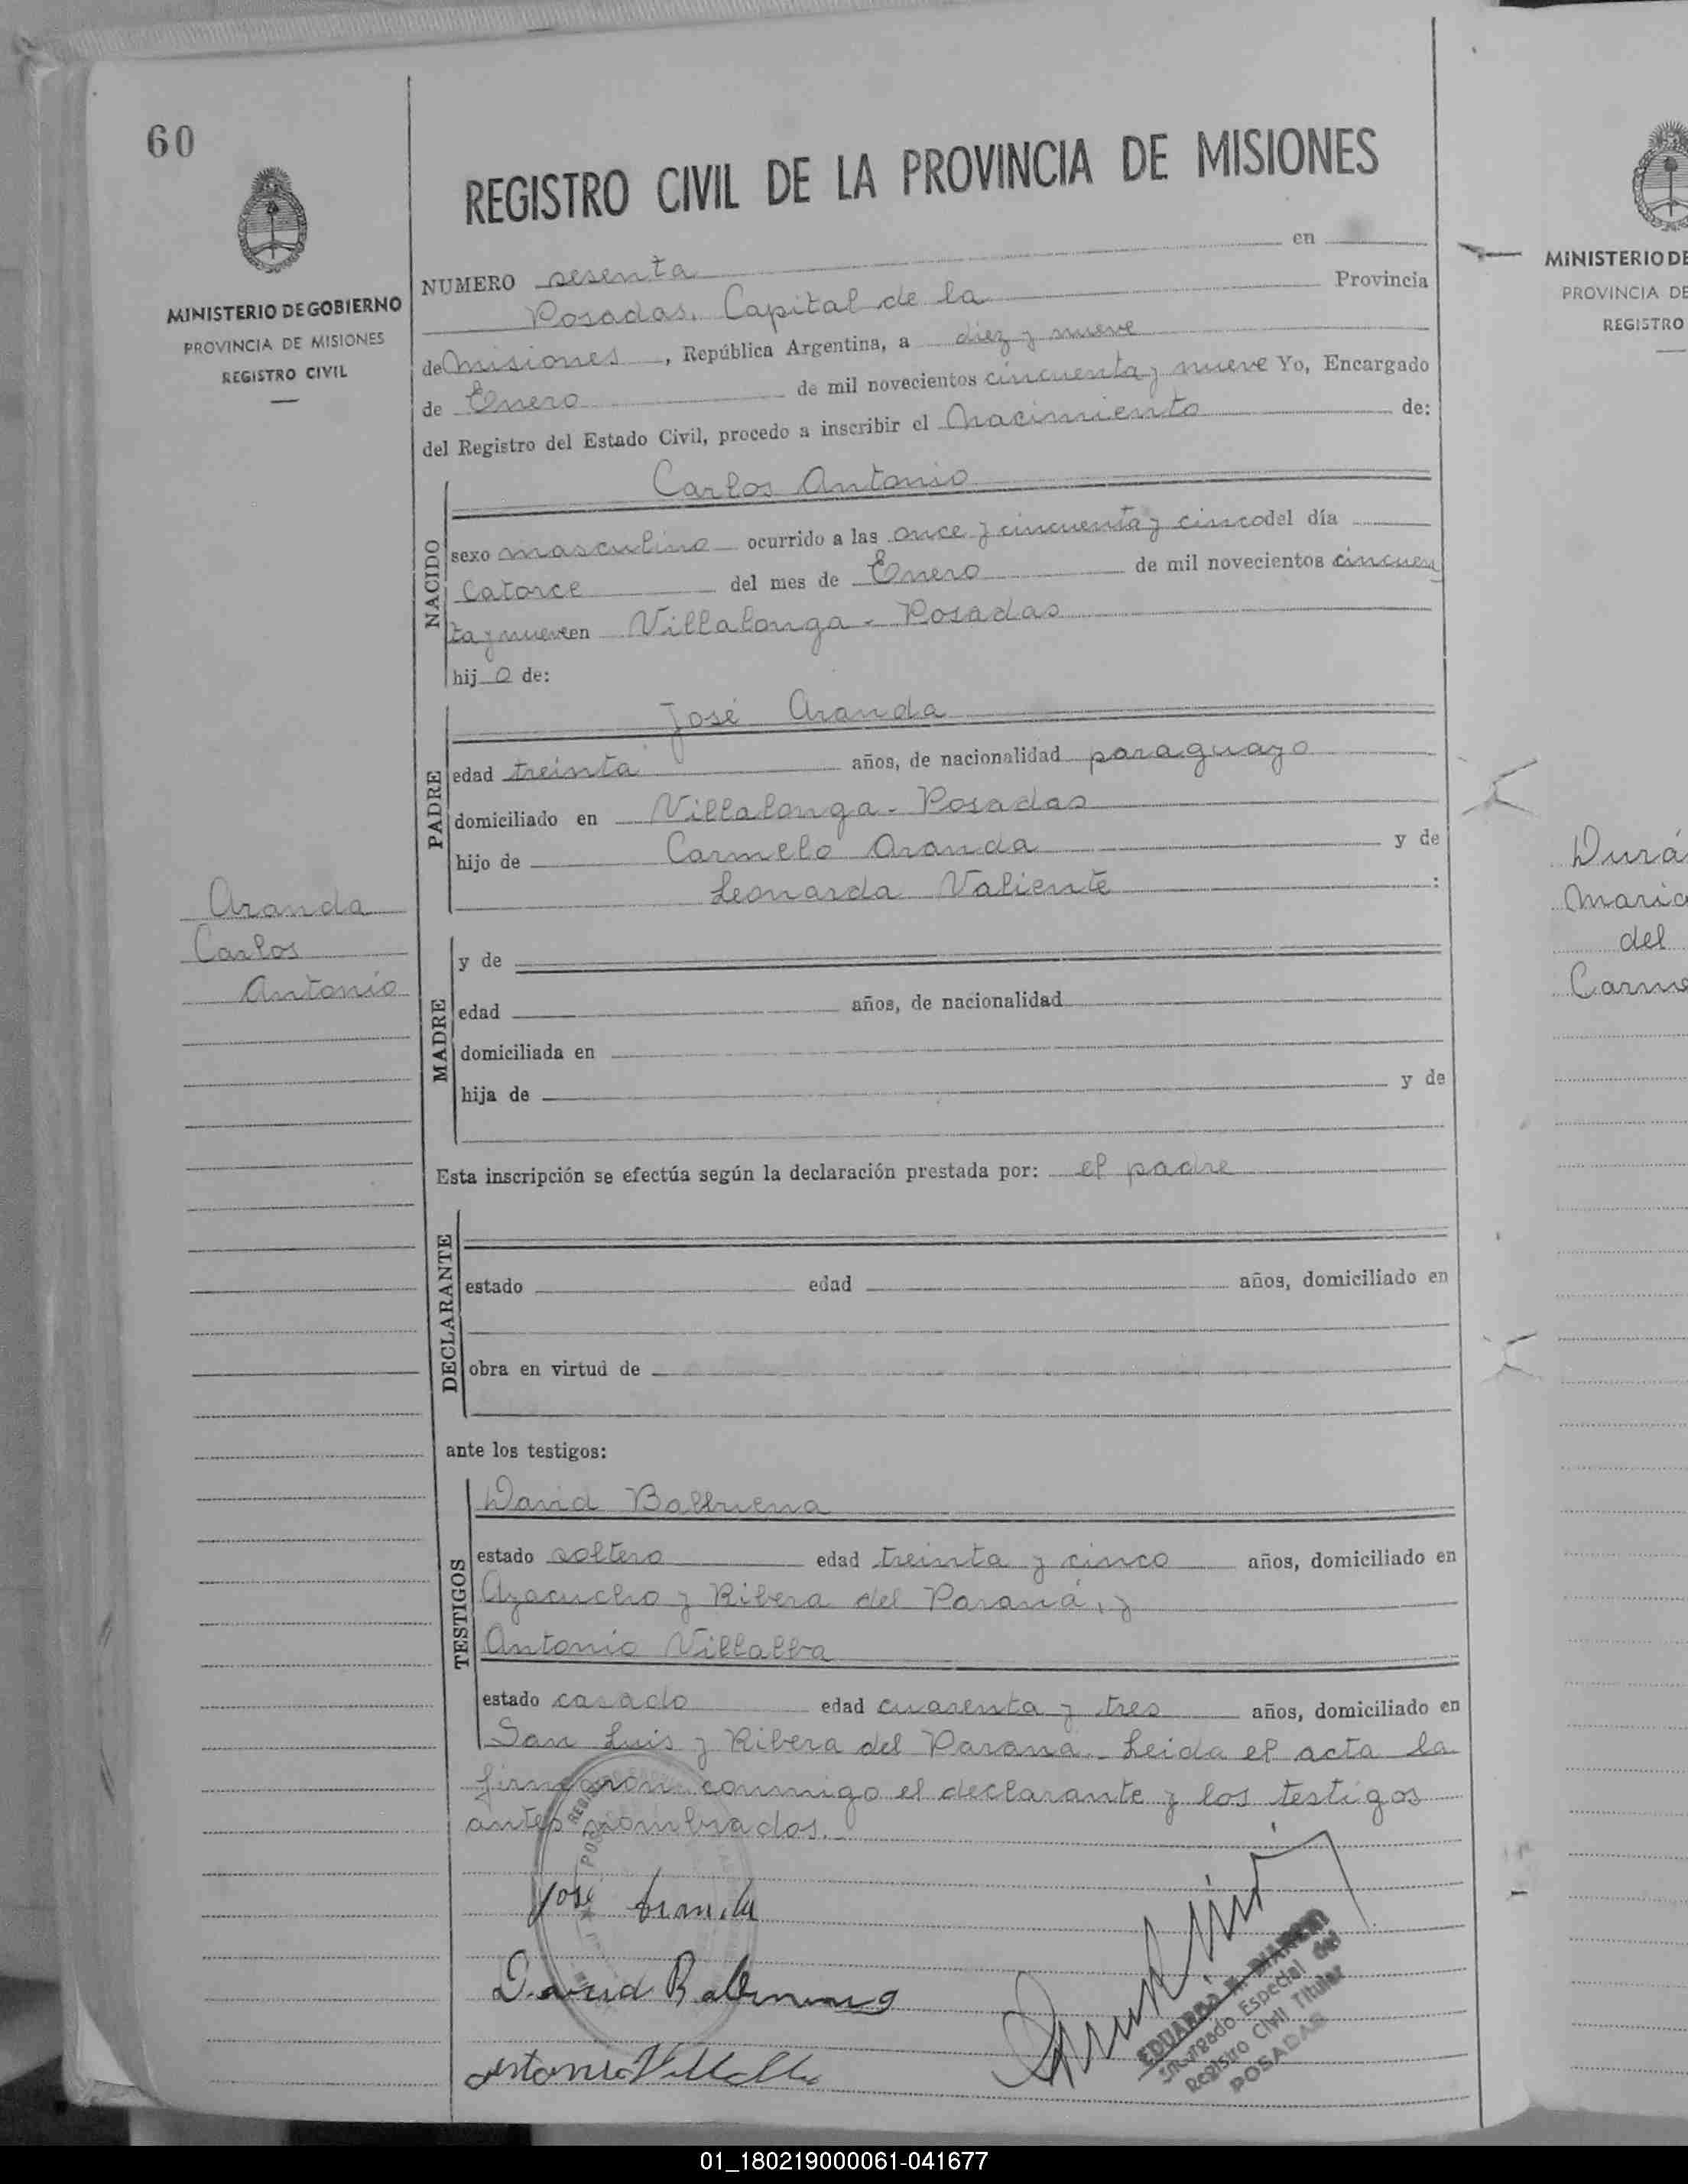 60
REGISTRO CIVIL DE LA PROVINCIA DE MISIONES
MINISTERIO DE GOBIERNO
PROVINCIA DE MISIONES
REGISTRO CIVIL
NUMERO sesenta en
Posadas, Capital de la Provincia
de Misiones, República Argentina, a diez y nueve
de Enero de mil novecientos cincuenta y nueve Yo, Encargado
del Registro del Estado Civil, procedo a inscribir el Nacimiento de:
NACIDO
Carlos Antonio
sexo masculino ocurrido a las once y cincuenta y cinco del día
Catorce del mes de Enero de mil novecientos cincuen
ta y nueve en Villalonga - Posadas
hij o de:
PADRE
José Aranda
edad treinta años, de nacionalidad paraguayo
domiciliado en Villalonga - Posadas
hijo de Carmelo Aranda y de
Leonarda Valiente :
Aranda
Carlos
Antonio
MADRE
y de
edad años, de nacionalidad
domiciliada en
hija de y de
Esta inscripción se efectúa según la declaración prestada por: el padre
DECLARANTE
estado edad años, domiciliado en
obra en virtud de
ante los testigos:
TESTIGOS
David Balbuena
estado soltero edad treinta y cinco años, domiciliado en
Ayacucho y Ribera del Paraná, y
Antonio Villalba
estado casado edad cuarenta y tres años, domiciliado en
San Luis y Ribera del Parana. Leida el acta la
firmaron conmigo el declarante y los testigos
antes nombrados.
José Aranda
David Balbuena
Antonio Villalba
Encargado Especial del
Registro Civil Titular
POSADAS
MINISTERIO DE
PROVINCIA DE
REGISTRO
Durá
Maria
del
Carme
01_180219000061-041677